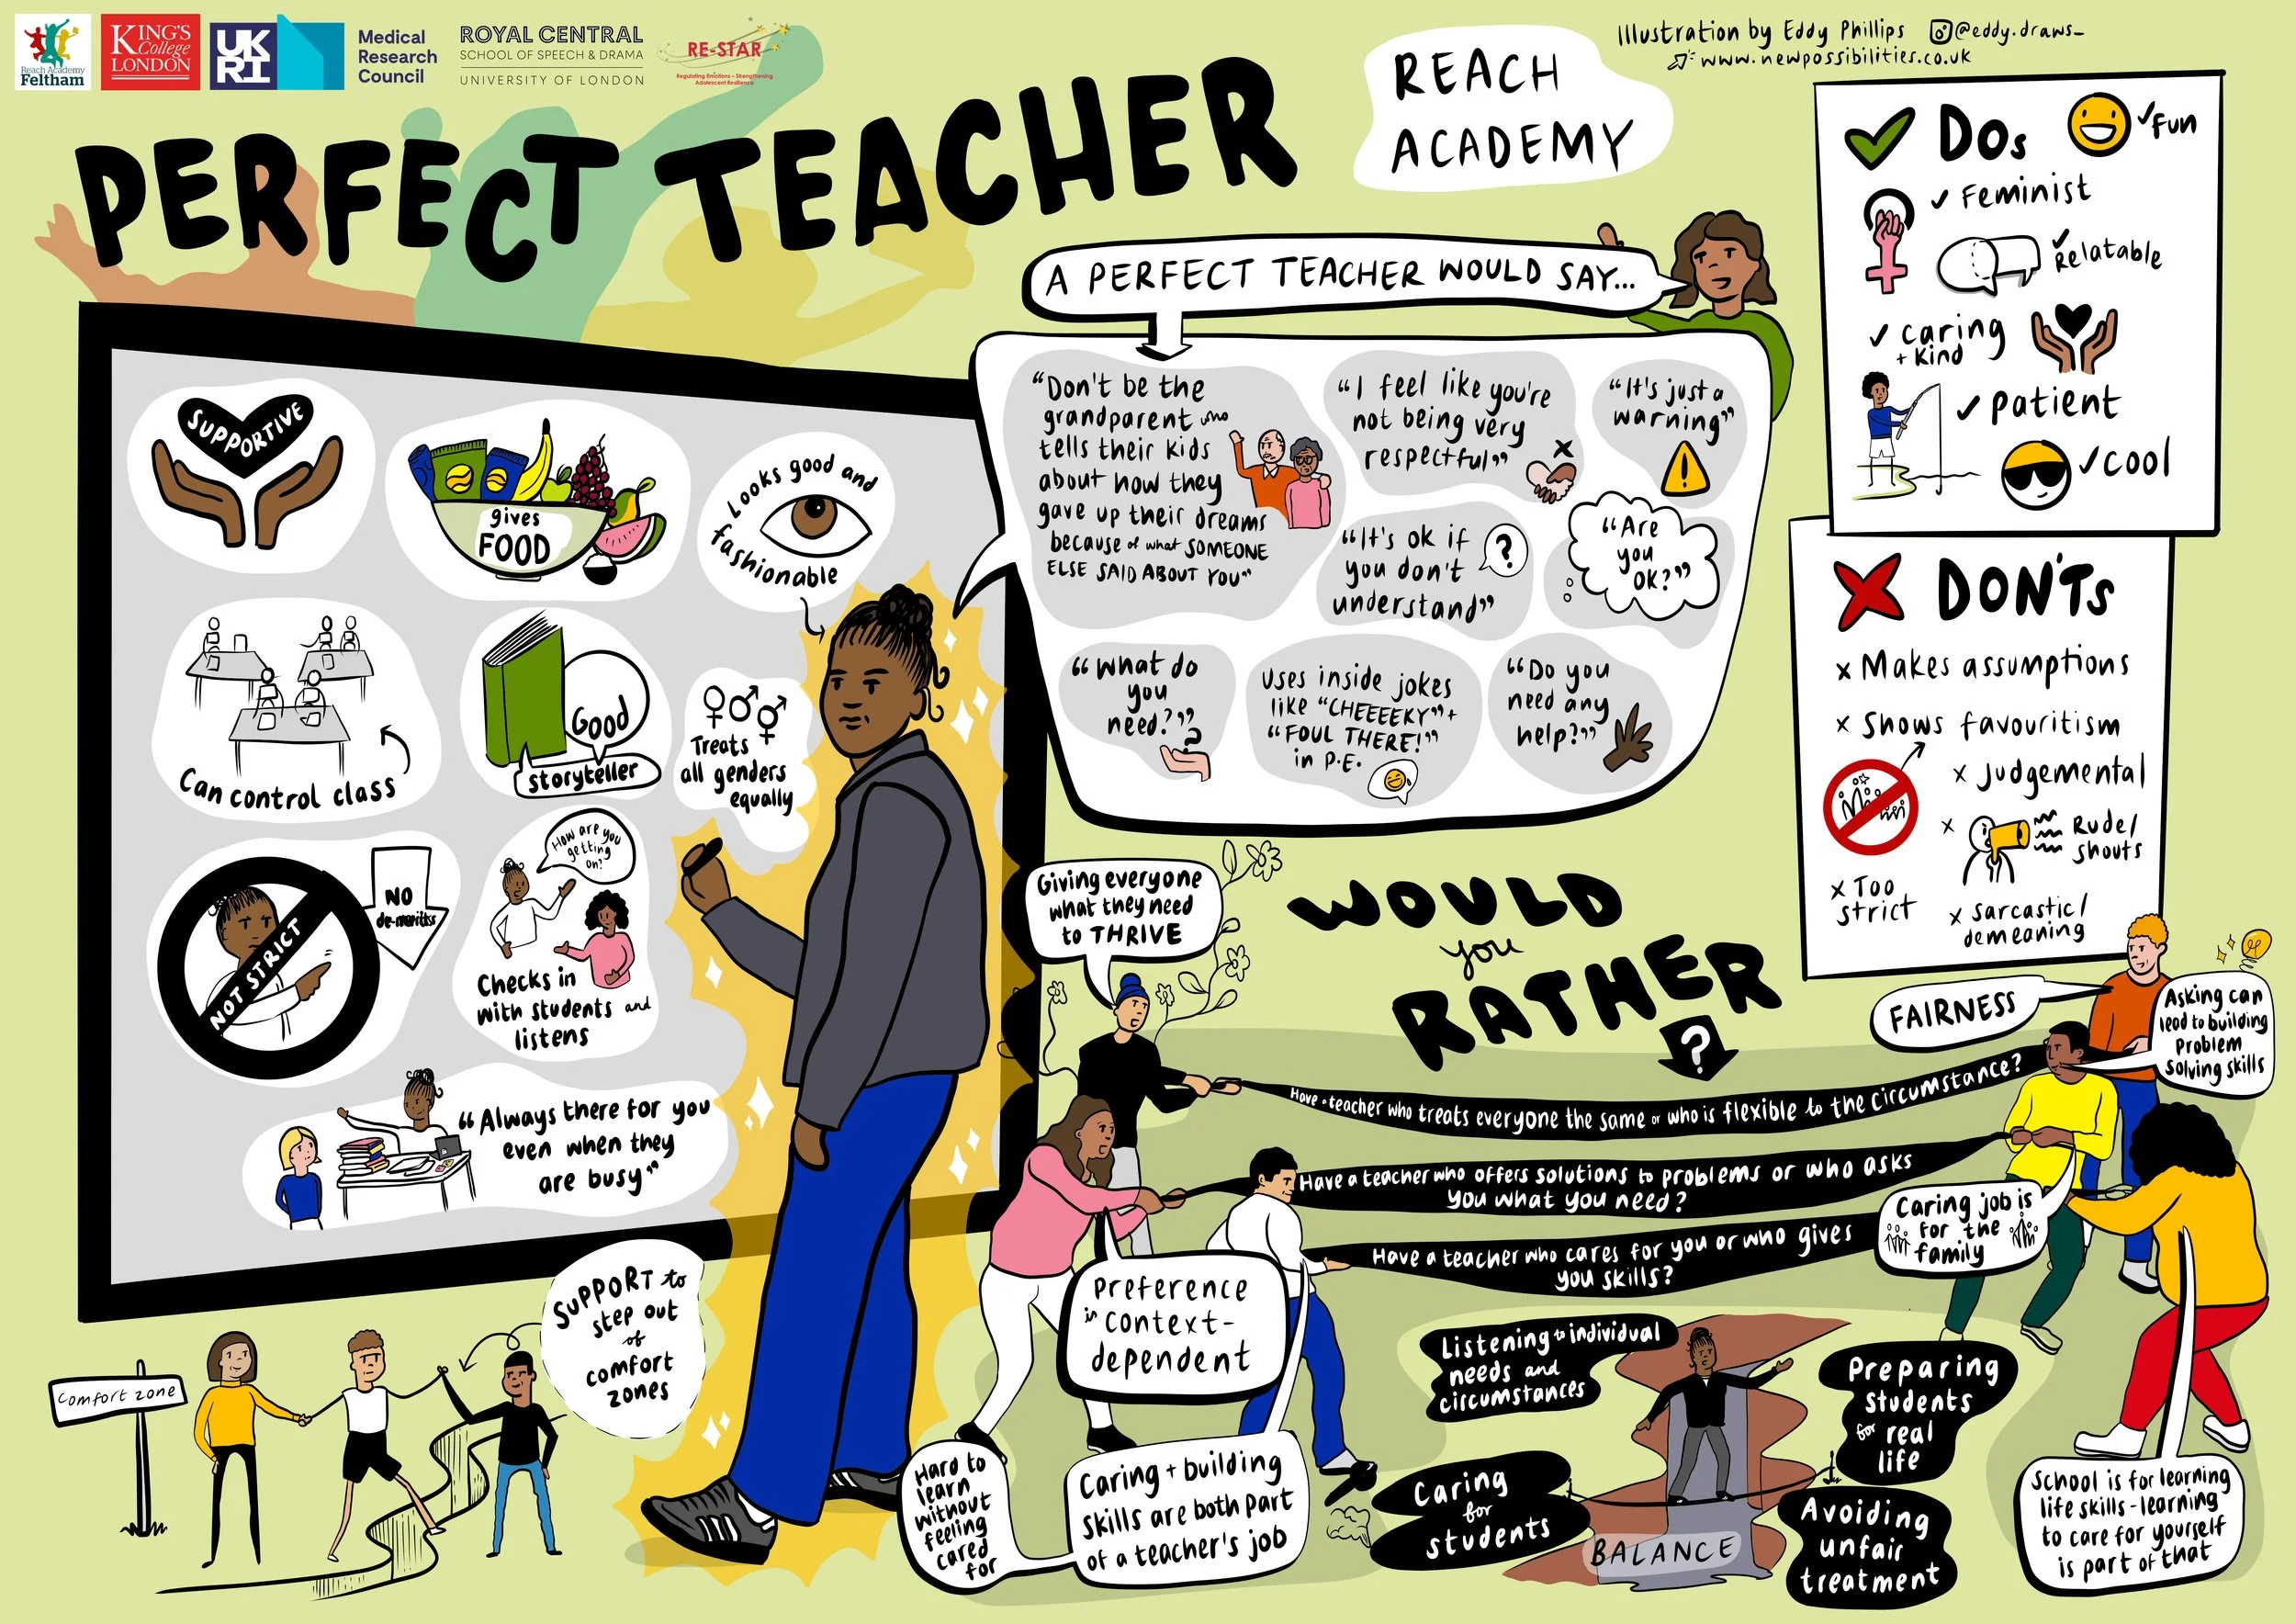 Reach Academy
Feltham
KING'S
College
LONDON
UK
RI
Medical
Research
Council
ROYAL CENTRAL
SCHOOL OF SPEECH & DRAMA
UNIVERSITY OF LONDON
RE-STAR
Regulating Emotions - Strengthening
Adolescent Resilience
PERFECT TEACHER
REACH
ACADEMY
Illustration by Eddy Phillips @eddy.draws_
www.newpossibilities.co.uk
SUPPORTIVE
gives
FOOD
Looks good and
fashionable
Can control class
Good
storyteller
Treats
all genders
equally
NOT STRICT
NO
How are you
getting
on?
Checks in
with students and
listens
"Always there for you
even when they
are busy"
A PERFECT TEACHER WOULD SAY...
"Don't be the
grandparent who
tells their kids
about how they
gave up their dreams
because of what SOMEONE
ELSE SAID ABOUT YOU"
"I feel like you're
not being very
respectful"
"It's just a
warning"
"It's ok if
you don't
understand"
?
"Are
you
OK?"
"What do
you
need?"
Uses inside jokes
like "CHEEEEKY" +
"FOUL THERE!"
in P.E.
"Do you
need any
help?"
DOs
fun
Feminist
Relatable
Caring
+ Kind
Patient
Cool
DON'TS
x Makes assumptions
x Shows favouritism
x Judgemental
x Rude/
shouts
x Too
strict
x Sarcastic/
demeaning
WOULD
you
RATHER
?
Giving everyone
what they need
to THRIVE
FAIRNESS
Asking can
lead to building
Problem
Solving skills
Have a teacher who treats everyone the same or who is flexible to the circumstance?
Have a teacher who offers solutions to problems or who asks
you what you need?
Have a teacher who cares for you or who gives
you skills?
Caring job is
for the
family
Preference
is context-
dependent
Hard to
learn
without
feeling
cared
for
Caring + building
skills are both part
of a teacher's job
Listening to individual
needs and
circumstances
Preparing
students
for real
life
Caring
for
students
Avoiding
unfair
treatment
BALANCE
School is for learning
life skills - learning
to care for yourself
is part of that
SUPPORT to
step out
of
comfort
zones
Comfort zone